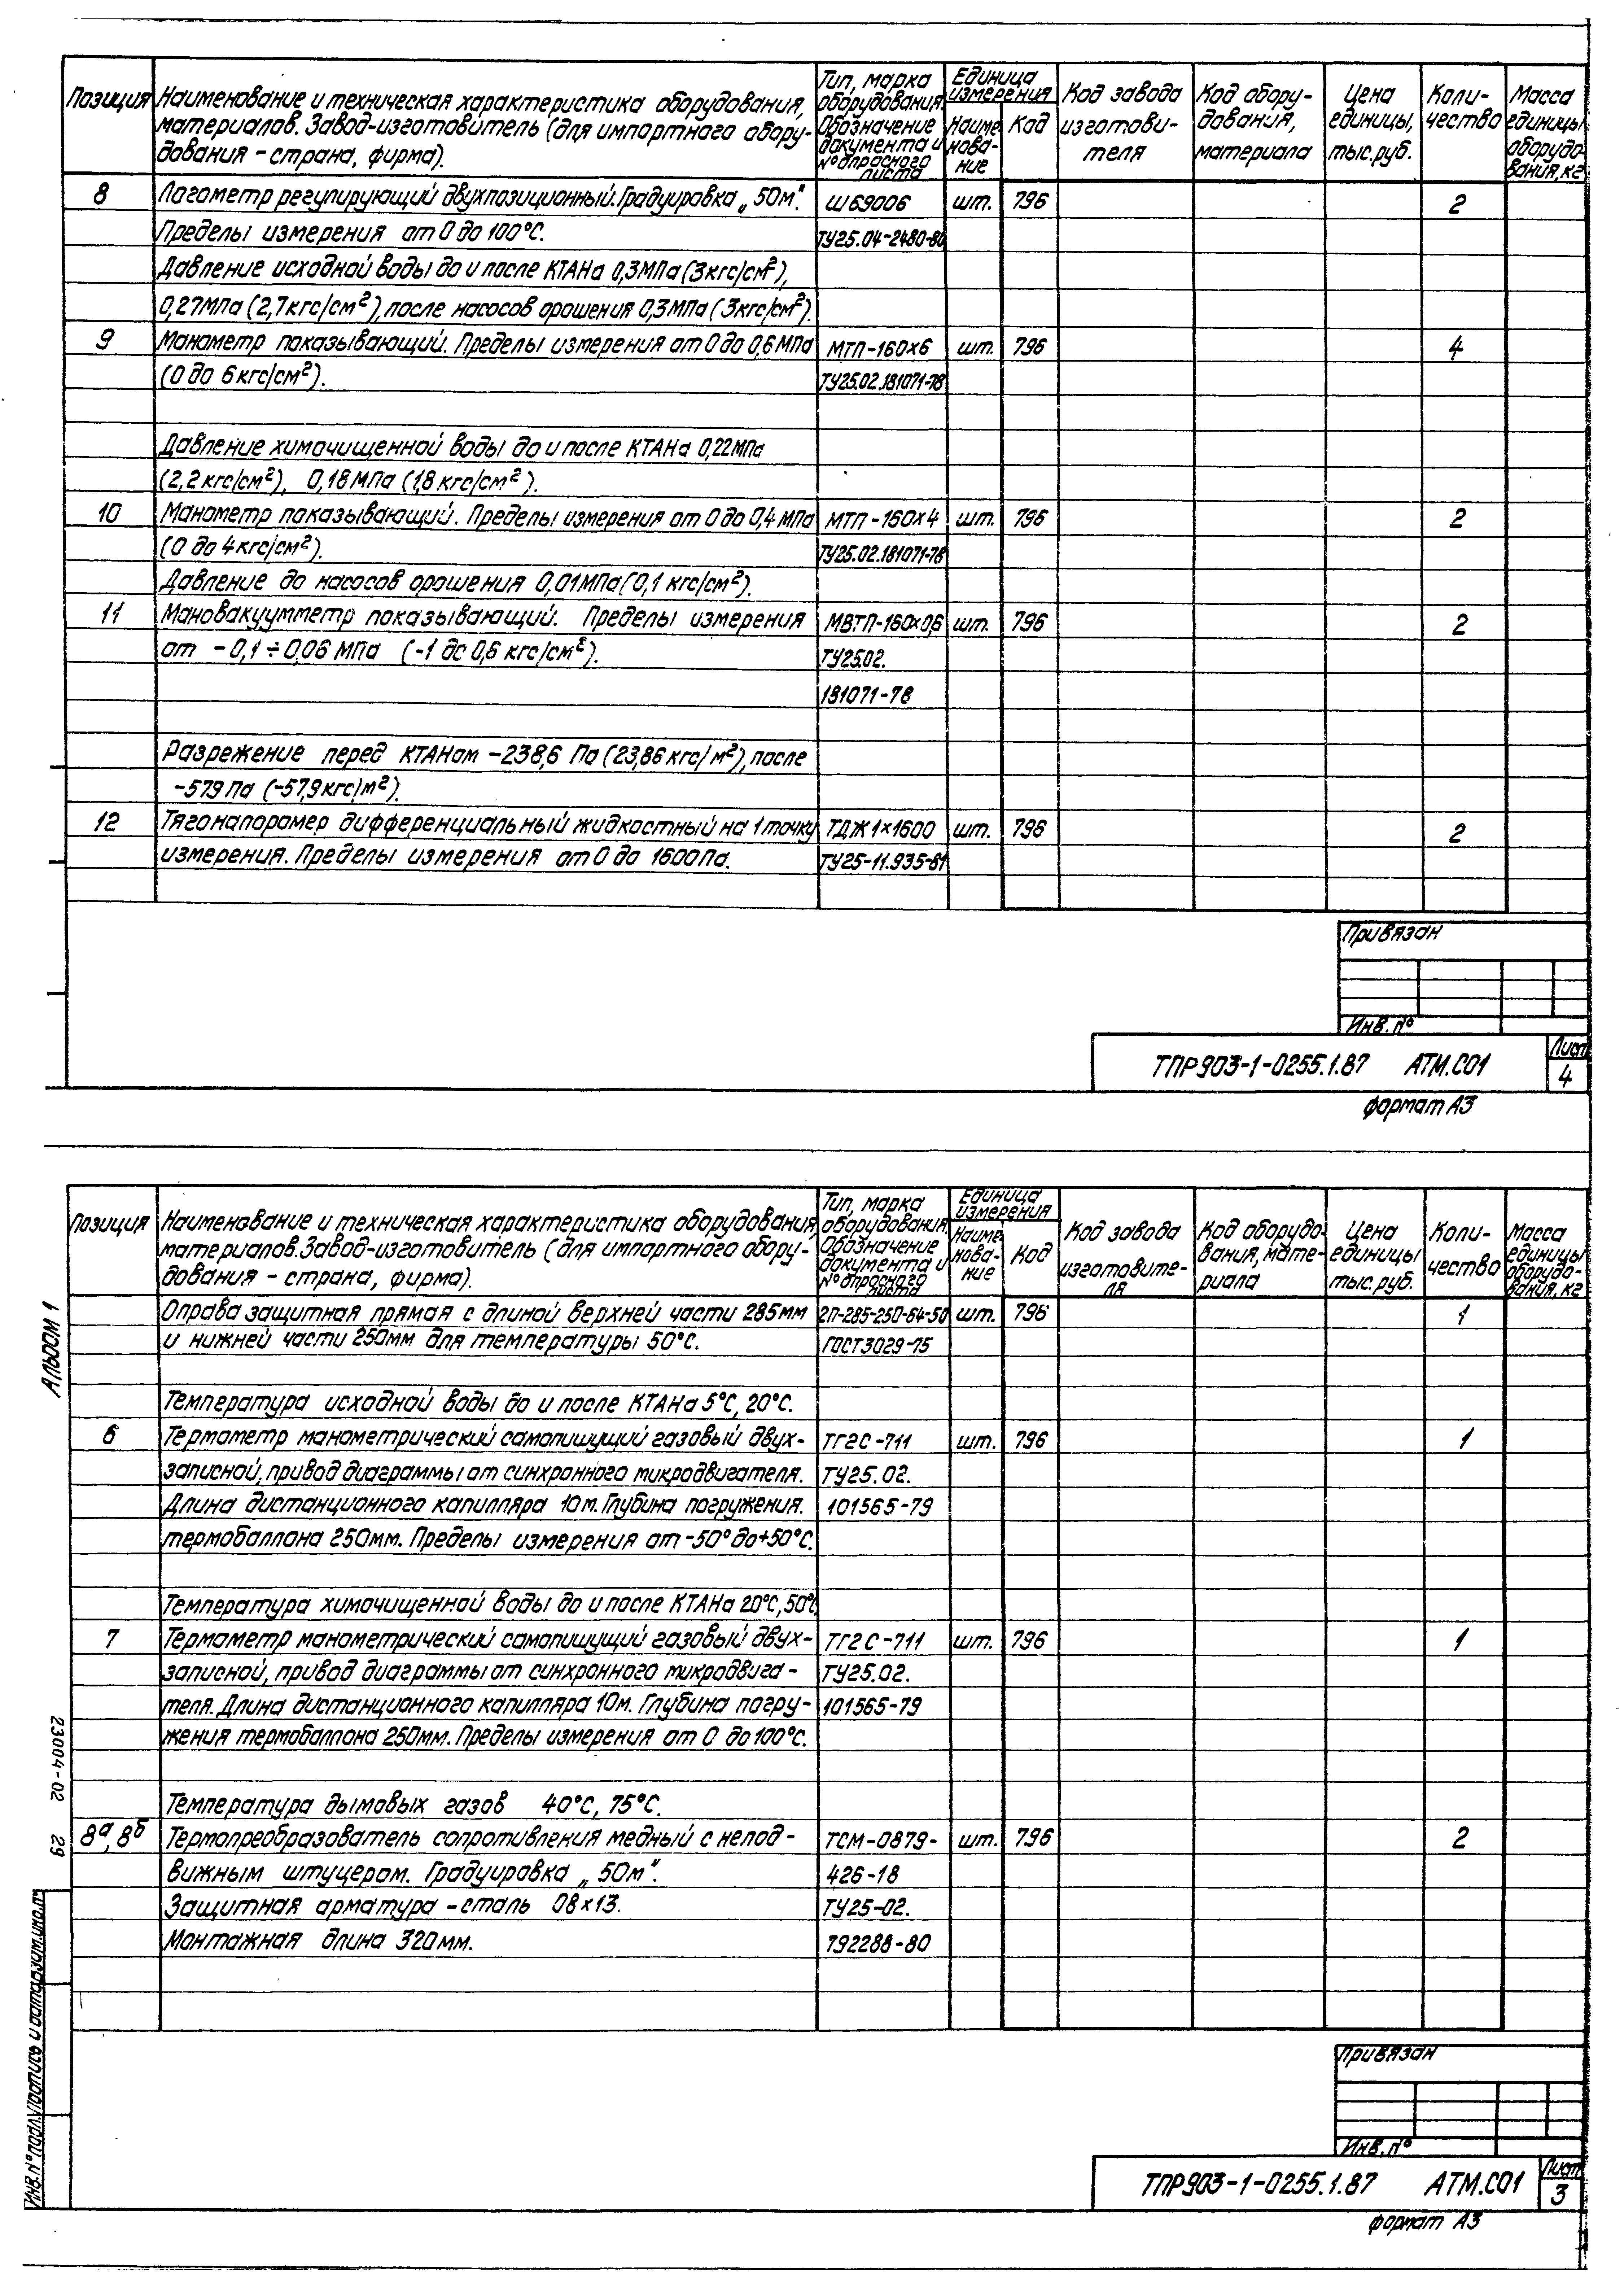 Позиция
Наименование и техническая характеристика оборудования,
материалов. Завод-изготовитель (для импортного обору-
дования - страна, фирма).
Тип, марка
оборудования.
Обозначение
документа и
№ опросного
листа
Единица
измерения
Наиме-
нова-
ние
Код
Код завода
изготови-
теля
Код обору-
дования,
материала
Цена
единицы,
тыс.руб.
Коли-
чество
Масса
единицы
оборудо-
вания, кг
8 Логометр регулирующий двухпозиционный. Градуировка „50м". Ш69006 шт. 796 2
Пределы измерения от 0 до 100°С. ТУ25.04-2480-80
Давление исходной воды до и после КТАНа 0,3МПа (3кгс/см²),
0,27МПа (2,7кгс/см²), после насосов орошения 0,3МПа (3кгс/см²).
9 Манометр показывающий. Пределы измерения от 0 до 0,6 МПа МТП-160х6 шт. 796 4
(0 до 6кгс/см²). ТУ25.02.181071-78
Давление химочищенной воды до и после КТАНа 0,22МПа
(2,2кгс/см²), 0,18МПа (1,8 кгс/см²).
10 Манометр показывающий. Пределы измерения от 0 до 0,4 МПа МТП-160х4 шт. 796 2
(0 до 4кгс/см²). ТУ25.02.181071-78
Давление до насосов орошения 0,01МПа (0,1 кгс/см²).
11 Мановакуумметр показывающий. Пределы измерения МВТП-160х0,6 шт. 796 2
от -0,1÷0,06 МПа (-1 до 0,6 кгс/см²). ТУ25.02.
181071-78
Разрежение перед КТАНом -238,6 Па (23,86 кгс/м²), после
-579 Па (-57,9кгс/м²).
12 Тягонапоромер дифференциальный жидкостный на 1 точку ТДЖ 1х1600 шт. 796 2
измерения. Пределы измерения от 0 до 1600Па. ТУ25-11.935-81
Привязан
Инв. №
ТПР903-1-0255.1.87 АТМ.С01
Лист
4
формат А3
Позиция
Наименование и техническая характеристика оборудования,
материалов. Завод-изготовитель (для импортного обору-
дования - страна, фирма).
Тип, марка
оборудования.
Обозначение
документа и
№ опросного
листа
Единица
измерения
Наиме-
нова-
ние
Код
Код завода
изготовите-
ля
Код оборудо-
вания, мате-
риала
Цена
единицы
тыс.руб.
Коли-
чество
Масса
единицы
оборудо-
вания, кг
Оправа защитная прямая с длиной верхней части 285мм 2П-285-250-64-50 шт. 796 1
и нижней части 250мм для температуры 50°С. ГОСТ3029-75
Температура исходной воды до и после КТАНа 5°С, 20°С.
6 Термометр манометрический самопишущий газовый двух- ТГ2С-711 шт. 796 1
записной, привод диаграммы от синхронного микродвигателя. ТУ25.02.
Длина дистанционного капилляра 10м. Глубина погружения. 101565-79
термобаллона 250мм. Пределы измерения от -50° до+50°С.
Температура химочищенной воды до и после КТАНа 20°С, 50°С.
7 Термометр манометрический самопишущий газовый двух- ТГ2С-711 шт. 796 1
записной, привод диаграммы от синхронного микродвига- ТУ25.02.
теля. Длина дистанционного капилляра 10м. Глубина погру- 101565-79
жения термобаллона 250мм. Пределы измерения от 0 до 100°С.
Температура дымовых газов 40°С, 75°С.
8а, 8б Термопреобразователь сопротивления медный с непод- ТСМ-0879- шт. 796 2
вижным штуцером. Градуировка „50м". 426-18
Защитная арматура - сталь 08х13. ТУ25-02.
Монтажная длина 320мм. 792288-80
Альбом 1
23004-02 29
Инв. № подл. Подпись и дата Взам. инв. №
Привязан
Инв. №
ТПР903-1-0255.1.87 АТМ.С01
Лист
3
формат А3